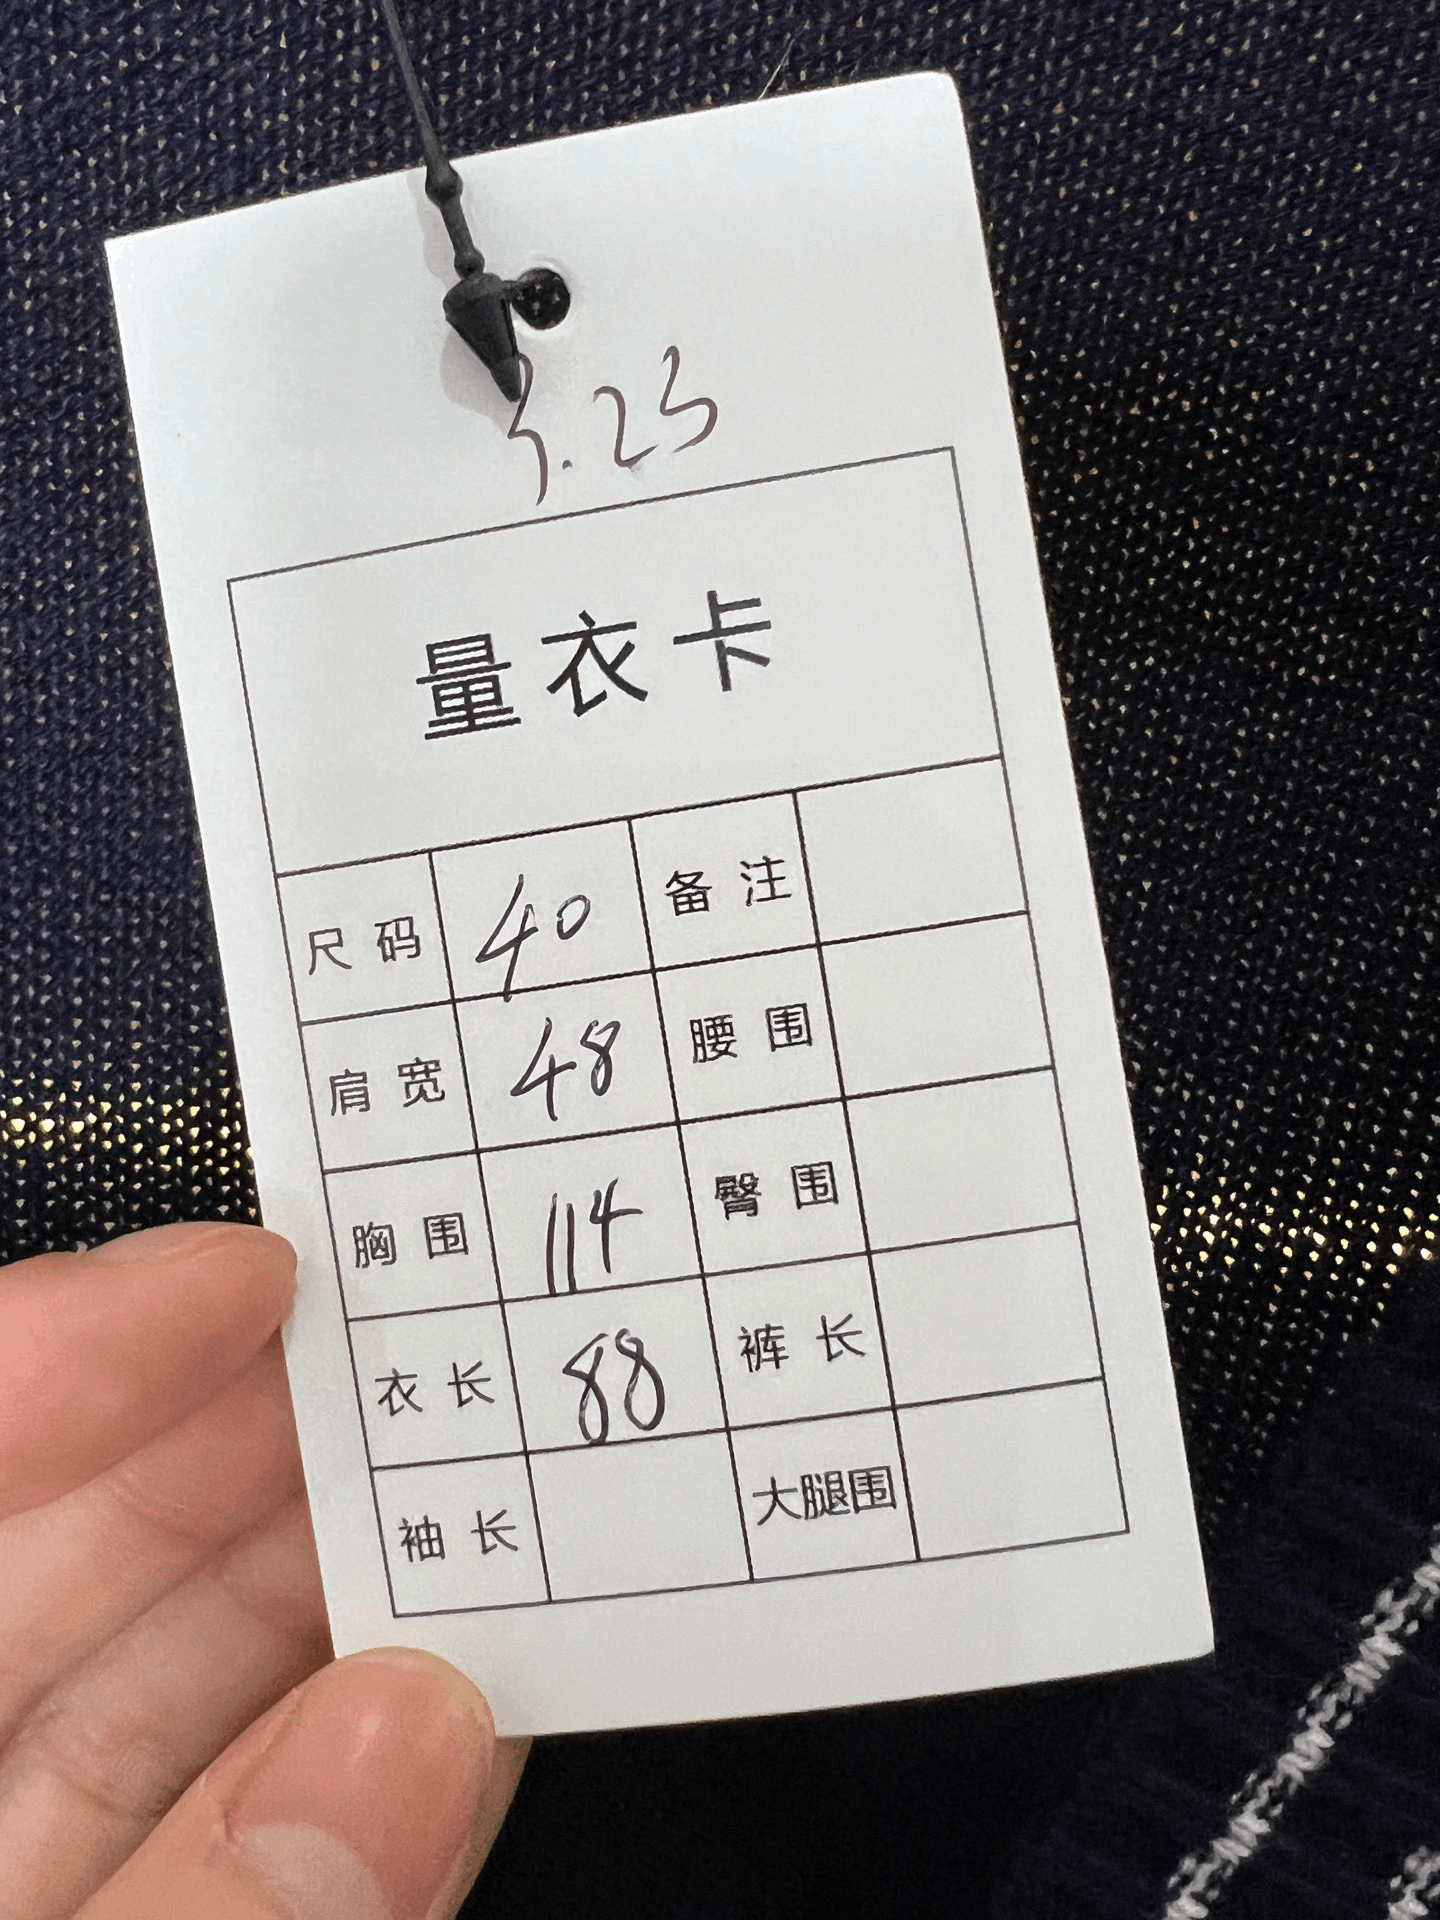 3.25
量衣卡
尺码 40 备注
肩宽 48 腰围
胸围 114 臀围
衣长 88 裤长
袖长 大腿围